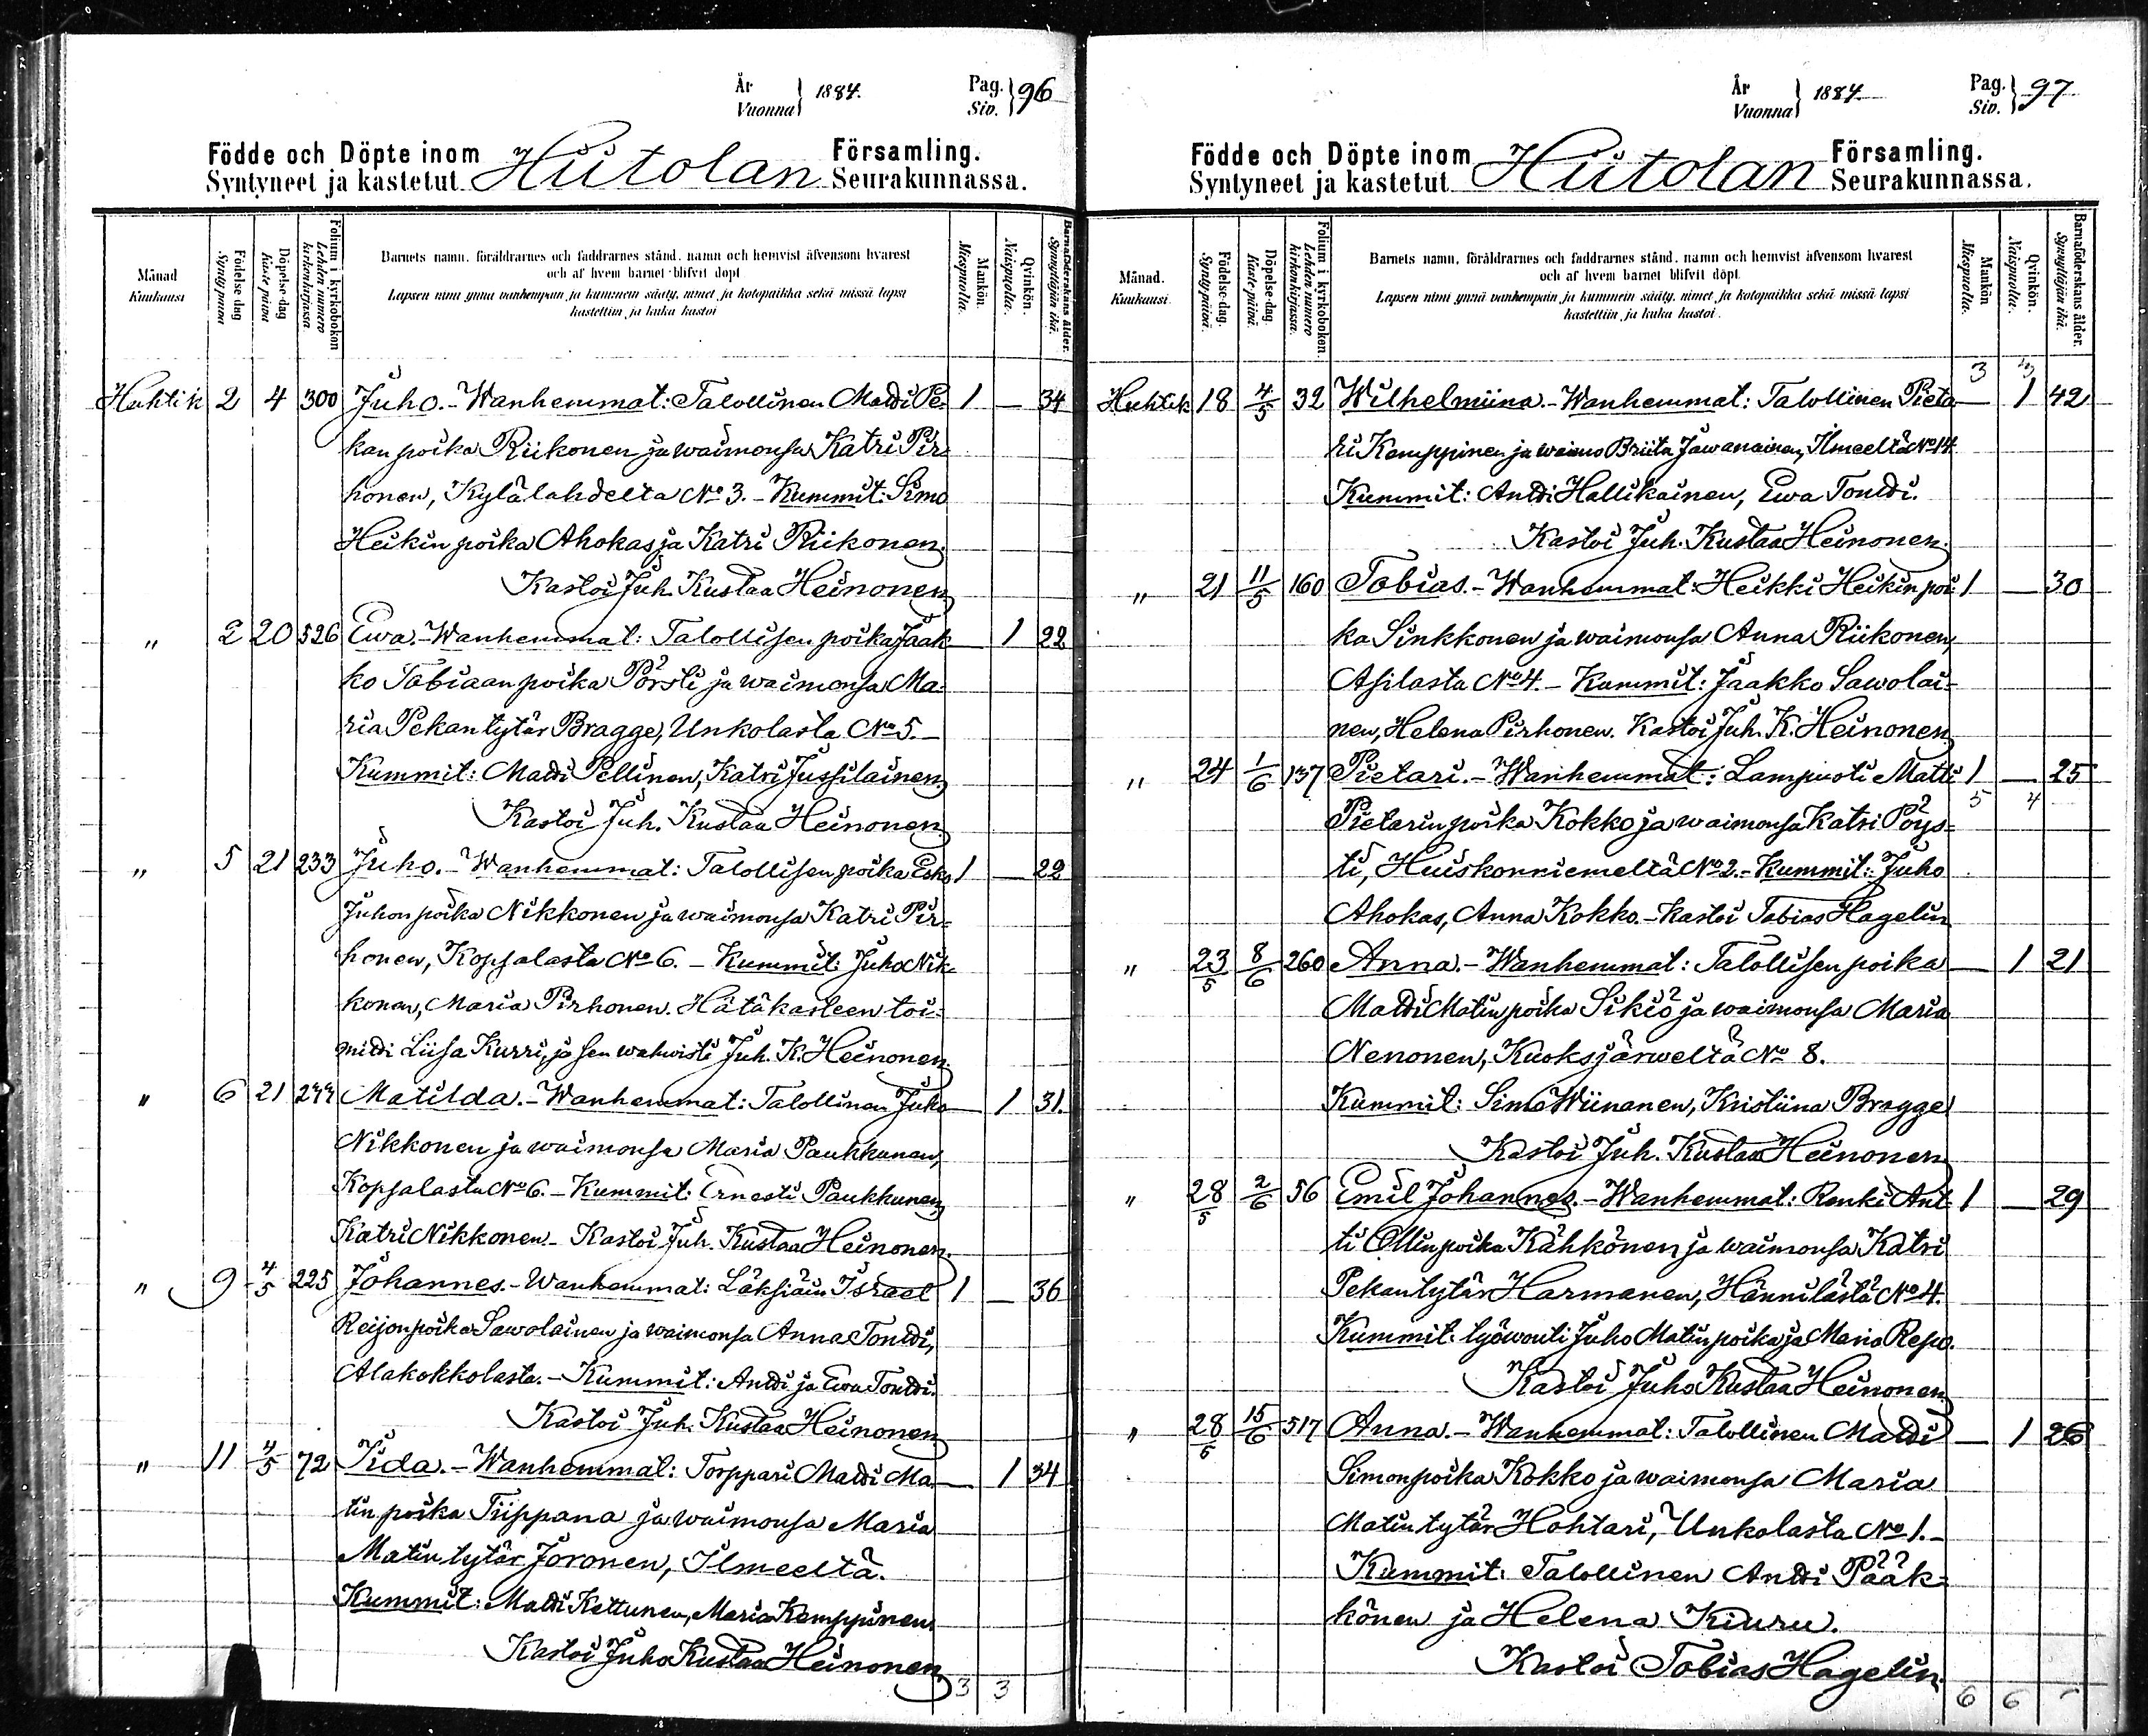 År
Vuonna } 1884.
Pag.
Siv. } 96
Födde och Döpte inom Hiitolan Församling.
Syntyneet ja kastetut Seurakunnassa.
Månad
Kuukausi
Födelse-dag
Synty päivä
Döpelse-dag
Kaste päivä
Folium i kyrkoboken
Lehden numero kirkonkirjassa
Barnets namn, föräldrarnes och faddrarnes stånd, namn och hemvist äfvensom hvarest
och af hvem barnet blifvit döpt
Lapsen nimi ynnä vanhempain ja kummein sääty, nimet ja kotopaikka sekä missä lapsi
kastettiin ja kuka kastoi
Mankön.
Miespuolta.
Qvinkön.
Naispuolta.
Barnaföderskans ålder.
Synnyttäjän ikä.
Huhtik 2 4 300 Juho. - Wanhemmat: Talollinen Matti Pe- 1 — 34
kan poika Riikonen ja waimonsa Katri Pir-
honen, Kylälahdelta No 3. - Kummit: Simo
Heikin poika Ahokas ja Katri Riikonen.
Kastoi Juh. Kustaa Heinonen
" 2 20 526 Ewa. - Wanhemmat: Talollisen poika Jaak- — 1 22
ko Tobiaan poika Pörsti ja waimonsa Ma-
ria Pekan tytär Bragge, Unkolasta No 5. -
Kummit: Matti Pellinen, Katri Jussilainen.
Kastoi Juh. Kustaa Heinonen
" 5 21 233 Juho. - Wanhemmat: Talollisen poika Esko 1 — 22
Juhon poika Nikkonen ja waimonsa Katri Pir-
honen, Kopsalasta No 6. - Kummit: Juho Nik-
konen, Maria Pirhonen. Hätäkasteen toi-
mitti Liisa Kurri, ja sen wahwisti Juh. K. Heinonen.
" 6 21 244 Matilda. - Wanhemmat: Talollinen Juho — 1 31.
Nikkonen ja waimonsa Maria Paukkunen,
Kopsalasta No 6. - Kummit: Ernesti Paukkunen,
Katri Nikkonen. - Kastoi Juh. Kustaa Heinonen.
" 9 4/5 225 Johannes. - Wanhemmat: Läksiäin Israel 1 — 36
Reijonpoika Sawolainen ja waimonsa Anna Tontti,
Alakokkolasta. - Kummit: Antti ja Ewa Tontti.
Kastoi Juh. Kustaa Heinonen
" 11 4/5 72 Iida. - Wanhemmat: Torppari Matti Ma- — 1 34
tin poika Tiippana ja waimonsa Maria
Matin tytär Joronen, Ilmeeltä.
Kummit: Matti Kettunen, Maria Kemppinen.
Kastoi Juho Kustaa Heinonen
3 3
År
Vuonna } 1884.
Pag.
Siv. } 97
Födde och Döpte inom Hiitolan Församling.
Syntyneet ja kastetut Seurakunnassa.
Månad.
Kuukausi.
Födelse-dag.
Synty päivä.
Döpelse-dag.
Kaste päivä.
Folium i kyrkoboken.
Lehden numero kirkonkirjassa.
Barnets namn, föräldrarnes och faddrarnes stånd, namn och hemvist äfvensom hvarest
och af hvem barnet blifvit döpt.
Lapsen nimi ynnä vanhempain ja kummein sääty, nimet ja kotopaikka sekä missä lapsi
kastettiin ja kuka kastoi.
Mankön
Miespuolta.
Qvinkön.
Naispuolta.
Barnaföderskans ålder.
Synnyttäjän ikä.
3 3
Huhtik 18 4/5 32 Wilhelmiina. - Wanhemmat: Talollinen Pieta- — 1 42
ri Kemppinen ja waimo Briita Jawanainen, Ilmeeltä No 14
Kummit: Antti Hallikainen, Ewa Tontti.
Kastoi Juh. Kustaa Heinonen.
" 21 11/5 160 Tobias. - Wanhemmat: Heikki Heikin poi- 1 — 30
ka Sinkkonen ja waimonsa Anna Riikonen,
Asilasta No 4. - Kummit: Jaakko Sawolai-
nen, Helena Pirhonen. Kastoi Juh. K. Heinonen
" 24 1/6 137 Pietari. - Wanhemmat: Lampuoti Matti 1 — 25
5 4
Pietarin poika Kokko ja waimonsa Katri Pöys-
ti, Huiskonniemeltä No 2. - Kummit: Juho
Ahokas, Anna Kokko. - Kastoi Tobias Hagelin
" 23/5 8/6 260 Anna. - Wanhemmat: Talollisen poika — 1 21
Matti Matin poika Sikiö ja waimonsa Maria
Nenonen, Kuoksjärweltä No 8.
Kummit: Simo Wiinanen, Kristiina Bragge
Kastoi Juh. Kustaa Heinonen
" 28/5 2/6 56 Emil Johannes. - Wanhemmat: Renki Ant- 1 — 29
ti Ollinpoika Kähkönen ja waimonsa Katri
Pekantytär Harmanen, Hännilästä No 4.
Kummit: työwouti Juho Matinpoika ja Maria Repo.
Kastoi Juho Kustaa Heinonen
" 28/5 15/6 517 Anna. - Wanhemmat: Talollinen Matti — 1 26
Simonpoika Kokko ja waimonsa Maria
Matin tytär Hohtari, Unkolasta No 1. -
Kummit: Talollinen Antti Pääk-
könen ja Helena Kiuru.
Kastoi Tobias Hagelin.
6 6